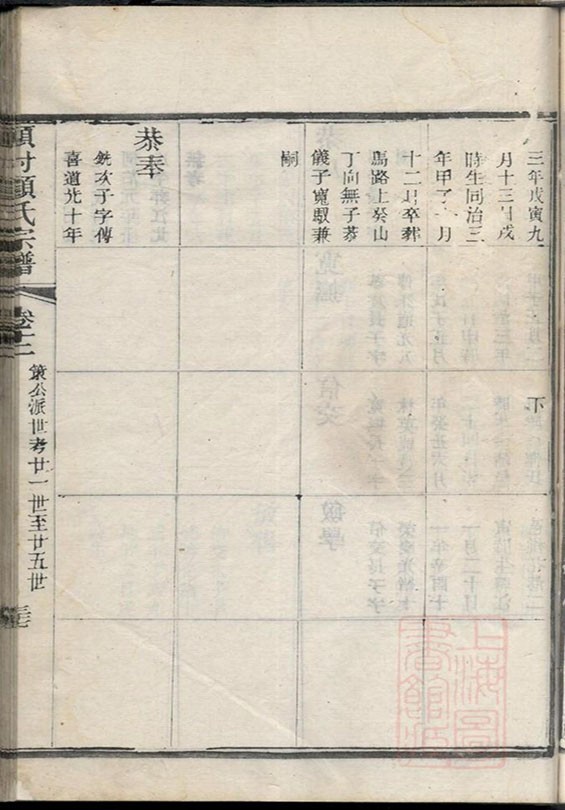 三年戊寅九
月十三日戌
時生同治三
年甲子 月
十二月卒葬
馬路上癸山
丁向無子恭
儀子寬馭兼
嗣
恭奉
銑次子字傳
喜道光十年
下
村顧氏宗譜
卷十二
策公派世考廿一世至廿五世
上海圖書館藏